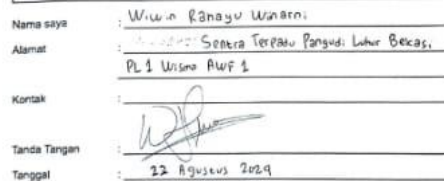 Nama saya : Wiwin Rahayu Winarni
Alamat : Sentra Terpadu Pangudi Luhur Bekasi,
PL 1 Wisma AWF 1
Kontak :
Tanda Tangan :
Tanggal : 22 Agustus 2024